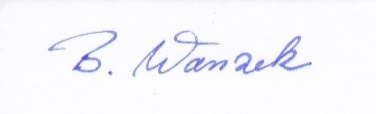 B. Wanzek